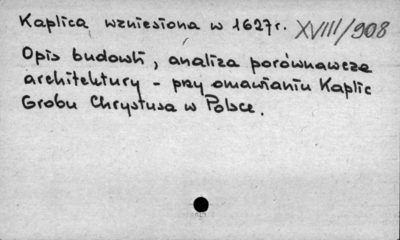 Kaplica wzniesiona w 1627r. XVIII/908
Opis budowli, analiza porównawcza
architektury - przy omawianiu Kaplic
Grobu Chrystusa w Polsce.